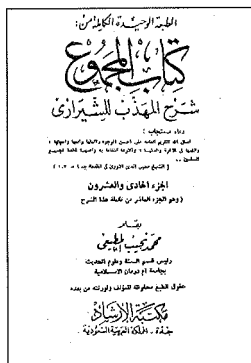 الطبعة الوحيدة الكاملة من:
كتاب المجموع
شرح المهذب للشيرازى
دعاء مستجاب:
الجزء الحادى والعشرون
(وهو الجزء العاشر من تكملة هذا الشرح
بقلم
محمد نجيب المطيعى
رئيس قسم السنة وعلوم الحديث
بجامعة أم درمان الاسلامية
حقوق الطبع محفوظة للمؤلف ولورثته من بعده
مكتبة الإرشاد
جدة - المملكة العربية السعودية